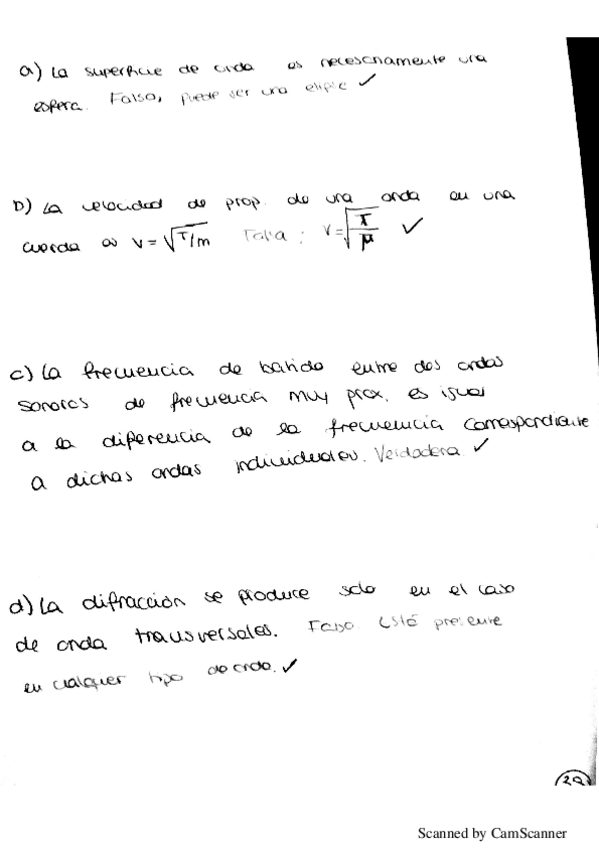 a) La superficie de onda es necesariamente una
esfera. Falso, puede ser una elipse ✓
b) La velocidad de prop. de una onda en una
cuerda es v = √T/m Falsa: v = √T/μ ✓
c) La frecuencia de batido entre dos ondas
sonoras de frecuencia muy prox. es igual
a la diferencia de la frecuencia correspondiente
a dichas ondas individuales. Verdadera ✓
d) La difracción se produce solo en el caso
de onda transversales. Falso Está presente
en cualquier tipo de onda. ✓
Scanned by CamScanner